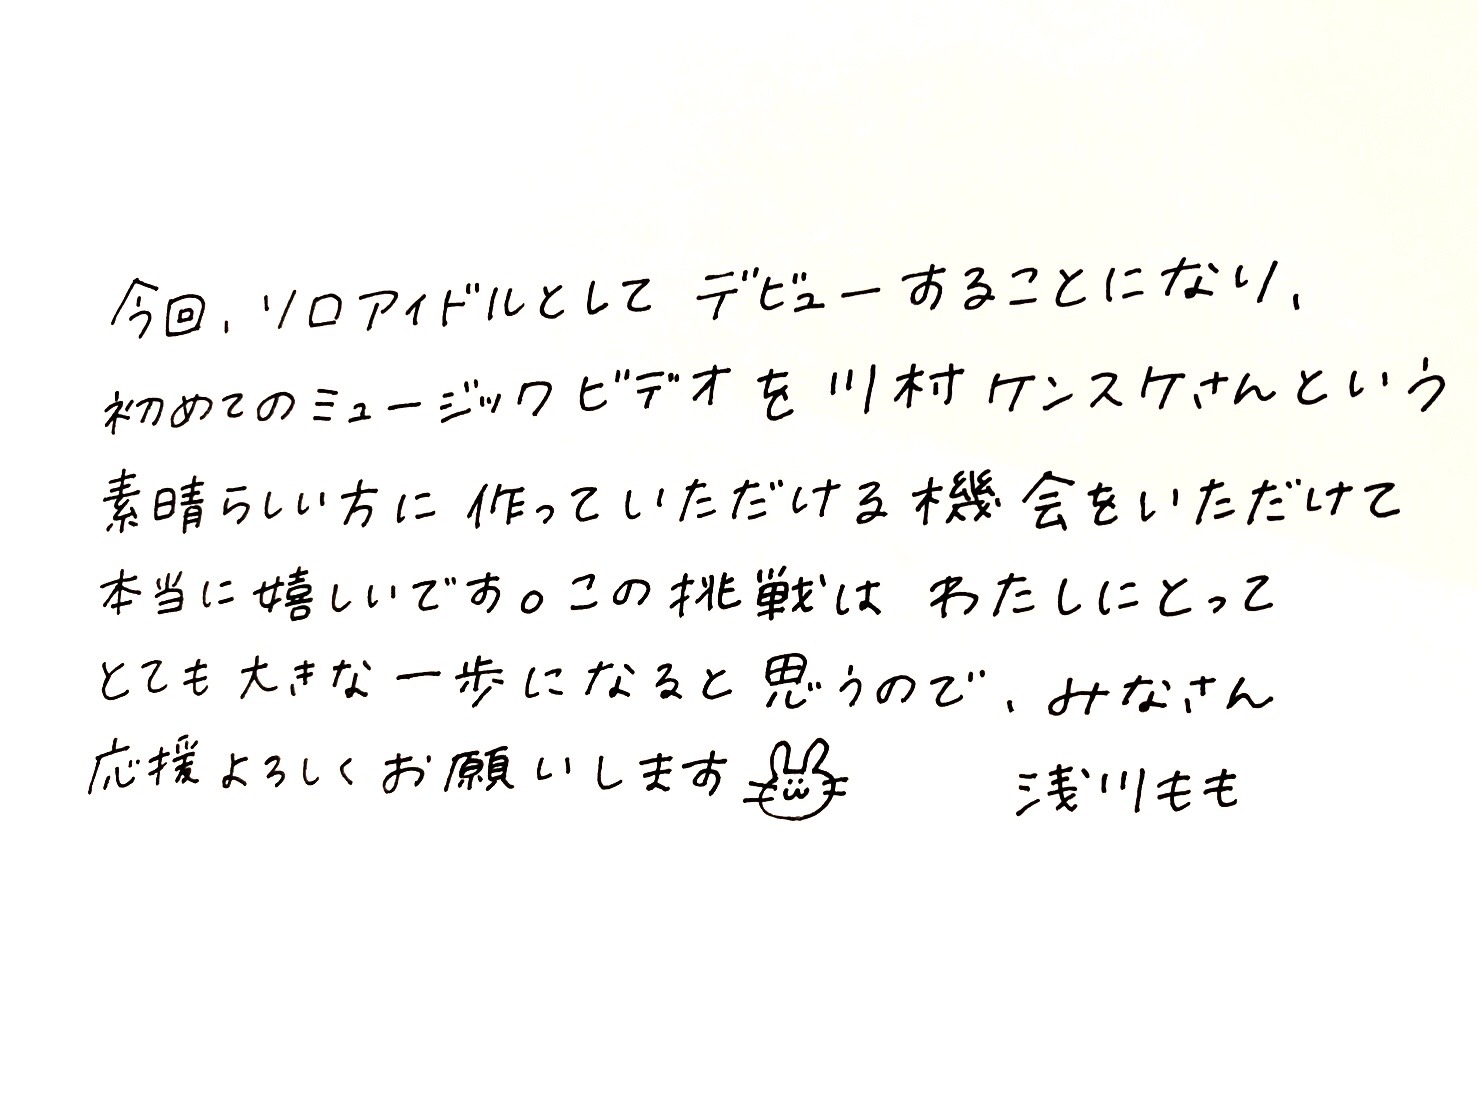 今回、ソロアイドルとして デビューすることになり、
初めてのミュージックビデオを川村ケンスケさんという
素晴らしい方に作っていただける機会をいただけて
本当に嬉しいです。この挑戦は わたしにとって
とても大きな一歩になると思うので、みなさん
応援よろしくお願いします
浅川もも